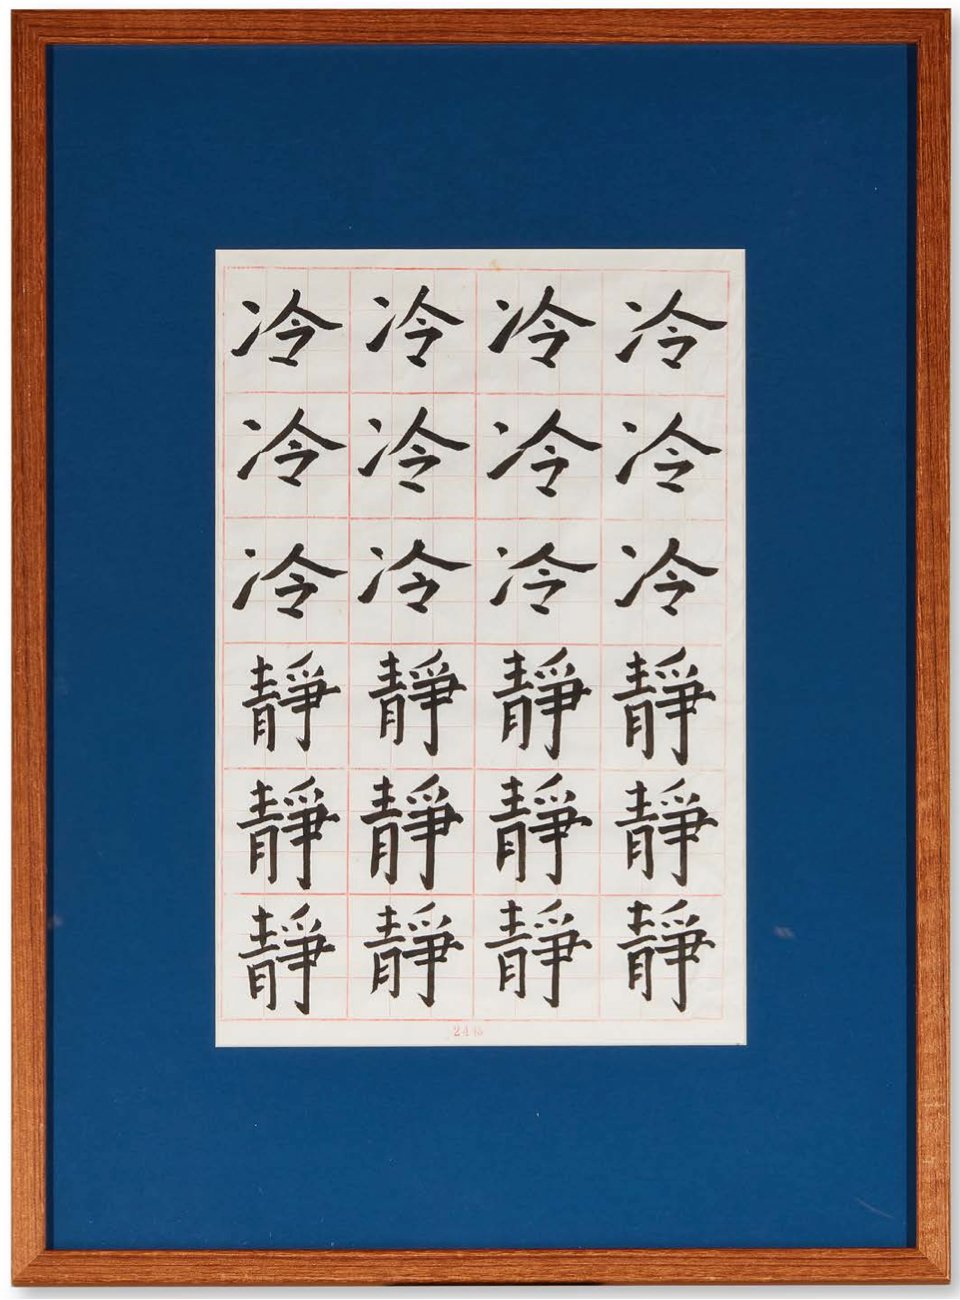 冷冷冷冷
冷冷冷冷
冷冷冷冷
靜靜靜靜
靜靜靜靜
靜靜靜靜